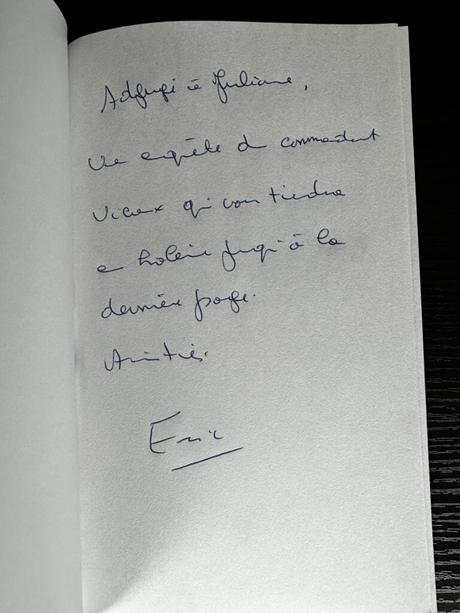 à Juliane,
Une enquête du commandant
Vicaux qui vous tiendra
en haleine jusqu'à la
dernière page.
Amitiés.
Eric